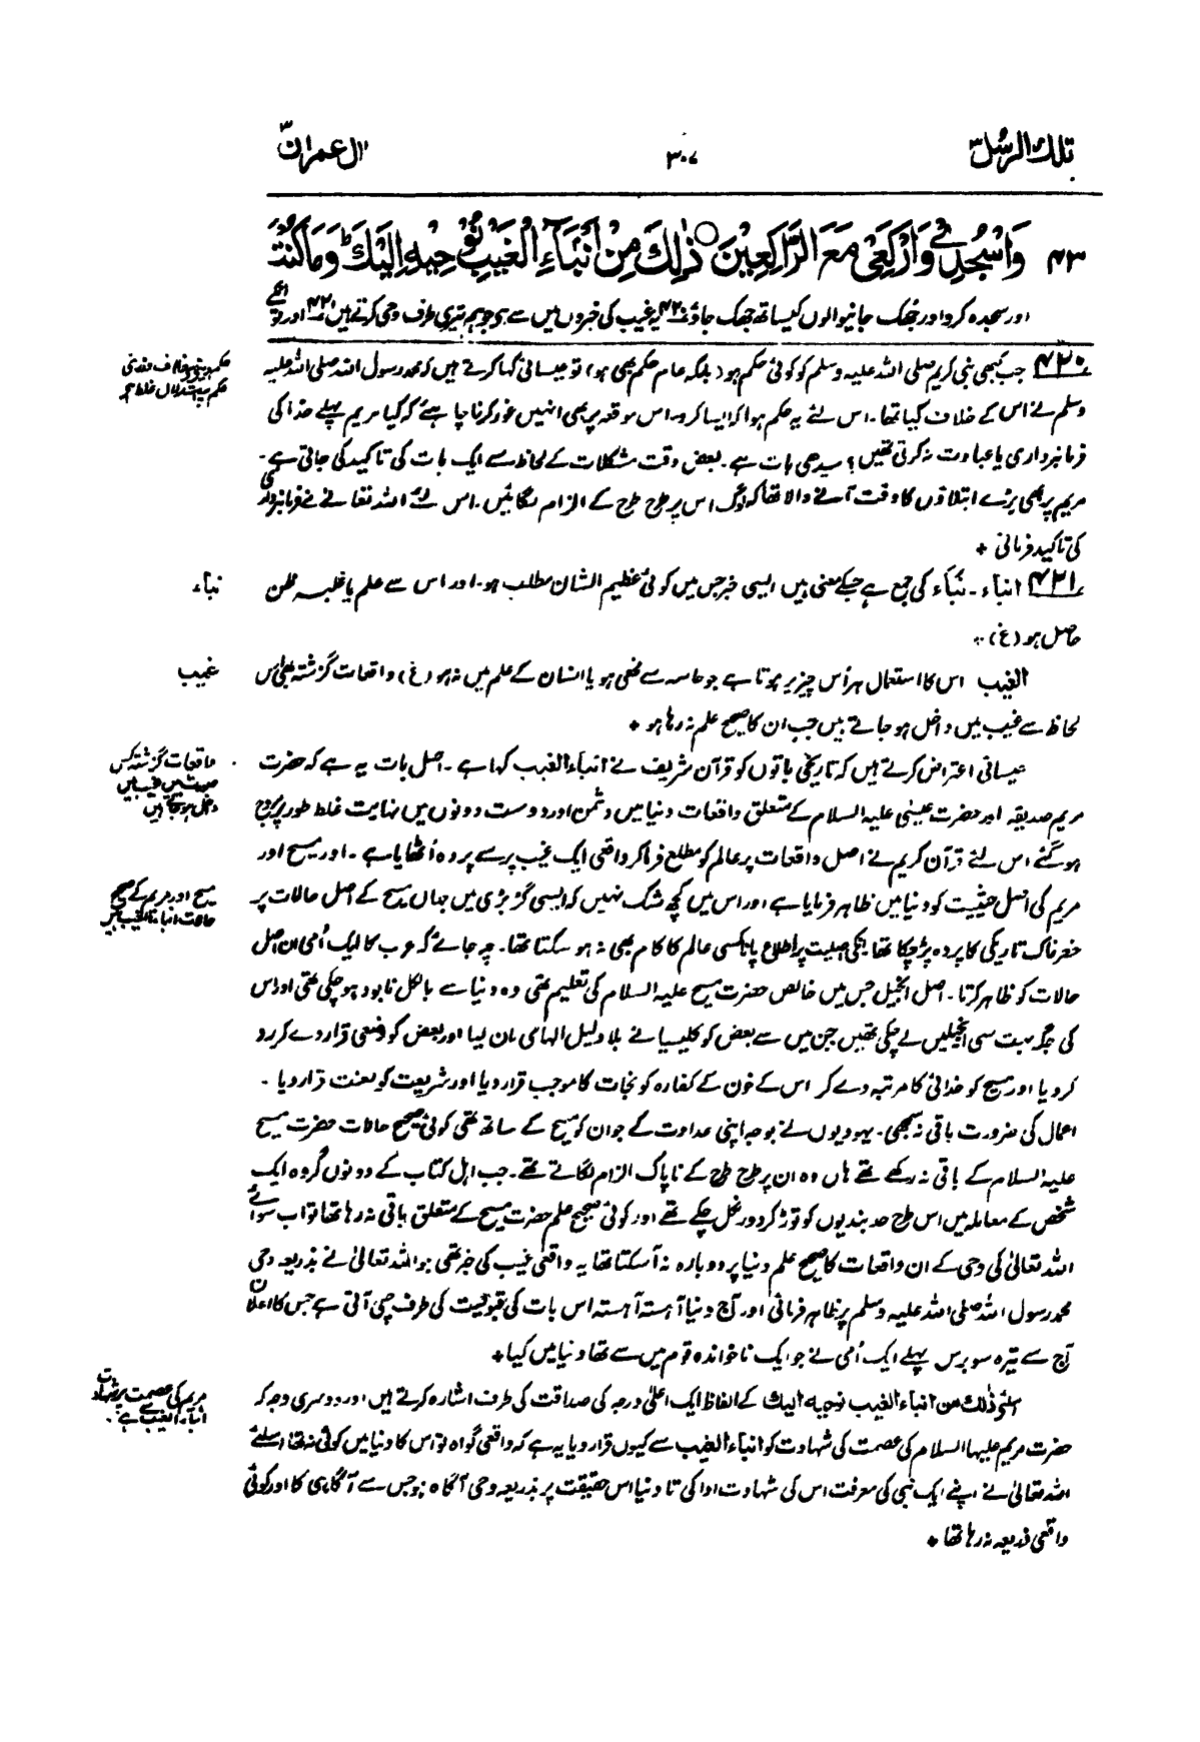 تلك الرسل ٣
٣٠٧
ال عمران ٣
٤٣ وَاسْجُدِیْ وَارْكَعِیْ مَعَ الرّٰكِعِیْنَ ○ ذٰلِكَ مِنْ اَنْۢبَآءِ الْغَیْبِ نُوْحِیْهِ اِلَیْكَ ؕ وَمَا كُنْتَ
اور سجدہ کرو اور جھک جانیوالوں کیساتھ جھک جاؤ ۴۲۰ یہ غیب کی خبروں میں سے ہے جو ہم تیری طرف وحی کرتے ہیں ۴۲۱ اور تو
۴۲۰ جب کبھی نبی کریم صلی اللہ علیہ وسلم کو کوئی حکم ہو (بلکہ عام حکم بھی ہو) تو عیسائی کہا کرتے ہیں کہ محمد رسول اللہ صلی اللہ علیہ
وسلم نے اس کے خلاف کیا تھا۔ اس لئے یہ حکم ہوا کہ ایسا کرو۔ اس موقعہ پر بھی انہیں غور کرنا چاہئے کہ کیا مریم پہلے خدا کی
فرمانبرداری یا عبادت نہ کرتی تھیں؟ سیدھی بات ہے۔ بعض وقت مشکلات کے لحاظ سے ایک بات کی تاکید کی جاتی ہے۔
مریم پر بھی بڑے ابتلاؤں کا وقت آنے والا تھا کہ لوگ اس پر طرح طرح کے الزام لگائیں۔ اس لئے اللہ تعالےٰ نے فرمانبرداری
کی تاکید فرمائی +
۴۲۱ انباء۔ نَبَاء کی جمع ہے جسکے معنی ہیں ایسی خبر جس میں کوئی عظیم الشان مطلب ہو۔ اور اس سے علم یا غلبہ ظن
نباء
حاصل ہو (غ)۔
الغیب اس کا استعمال ہر اُس چیز پر ہوتا ہے جو حاسہ سے مخفی ہو یا انسان کے علم میں نہ ہو (غ) واقعات گزشتہ بھی اس
غیب
لحاظ سے غیب میں داخل ہو جاتے ہیں جب ان کا صحیح علم نہ رہا ہو +
عیسائی اعتراض کرتے ہیں کہ تاریخی باتوں کو قرآن شریف نے انباء الغیب کہا ہے۔ اصل بات یہ ہے کہ حضرت
واقعات گزشتہ کس
صورت میں غیب میں
داخل ہو جاتے ہیں
مریم صدیقہ اور حضرت عیسیٰ علیہ السلام کے متعلق واقعات دنیا میں دشمن اور دوست دونوں میں نہایت غلط طور پر رائج
ہو گئے اس لئے قرآن کریم نے اصل واقعات پر عالم کو مطلع فرما کر واقعی ایک غیب پر سے پردہ اُٹھایا ہے۔ اور مسیح اور
مریم کی اصل حیثیت کو دنیا میں ظاہر فرمایا ہے اور اس میں کچھ شک نہیں کہ ایسی گڑبڑی میں جہاں مسیح کے اصل حالات پر
مسیح اور مریم کے صحیح
حالات انباء الغیب ہیں
خطرناک تاریکی کا پردہ پڑ چکا تھا انکی اصلیت پر اطلاع پانا کسی عالم کا کام بھی نہ ہو سکتا تھا۔ چہ جائے کہ عرب کا ایک اُمی ان اصل
حالات کو ظاہر کرتا۔ اصل انجیل جس میں خالص حضرت مسیح علیہ السلام کی تعلیم تھی وہ دنیا سے بالکل نابود ہو چکی تھی اور اس
کی جگہ بہت سی انجیلیں لے چکی تھیں جن میں سے بعض کو کلیسیا نے بلا دلیل الہامی مان لیا اور بعض کو وضعی قرار دے کر رد
کر دیا اور مسیح کو خدائی کا مرتبہ دے کر اس کے خون کے کفارہ کو نجات کا موجب قرار دیا اور شریعت کو لعنت قرار دیا۔
اعمال کی ضرورت باقی نہ سمجھی۔ یہودیوں نے بوجہ اپنی عداوت کے جو ان کو مسیح کے ساتھ تھی کوئی صحیح حالات حضرت مسیح
علیہ السلام کے باقی نہ رکھے تھے ہاں وہ ان پر طرح طرح کے ناپاک الزام لگاتے تھے۔ جب اہل کتاب کے دونوں گروہ ایک
شخص کے معاملہ میں اس طرح حد بندیوں کو توڑ کر دور نکل چکے تھے اور کوئی صحیح علم حضرت مسیح کے متعلق باقی نہ رہا تھا تو اب سوائے
اللہ تعالیٰ کی وحی کے ان واقعات کا صحیح علم دنیا پر دوبارہ نہ آ سکتا تھا یہ واقعی غیب کی خبر تھی جو اللہ تعالیٰ نے بذریعہ وحی
محمد رسول اللہ صلی اللہ علیہ وسلم پر ظاہر فرمائی اور آج دنیا آہستہ آہستہ اس بات کی قبولیت کی طرف چلی آتی ہے جس کا اعلان
آج سے تیرہ سو برس پہلے ایک اُمی نے جو ایک ناخواندہ قوم میں سے تھا دنیا میں کیا +
اسلئے ذٰلك من انباء الغیب نوحیه الیك کے الفاظ ایک اعلیٰ درجہ کی صداقت کی طرف اشارہ کرتے ہیں اور دوسری وجہ کہ
مریم کی عصمت پر شہادت
انباء الغیب سے ہے۔
حضرت مریم علیہا السلام کی عصمت کی شہادت کو انباء الغیب سے کیوں قرار دیا یہ ہے کہ واقعی گواہ تو اس کا دنیا میں کوئی نہ تھا اسلئے
اللہ تعالیٰ نے اپنے ایک نبی کی معرفت اس کی شہادت ادا کی تا دنیا اس حقیقت پر بذریعہ وحی آگاہ ہو جس سے آگاہی کا اور کوئی
واقعی ذریعہ نہ رہا تھا +